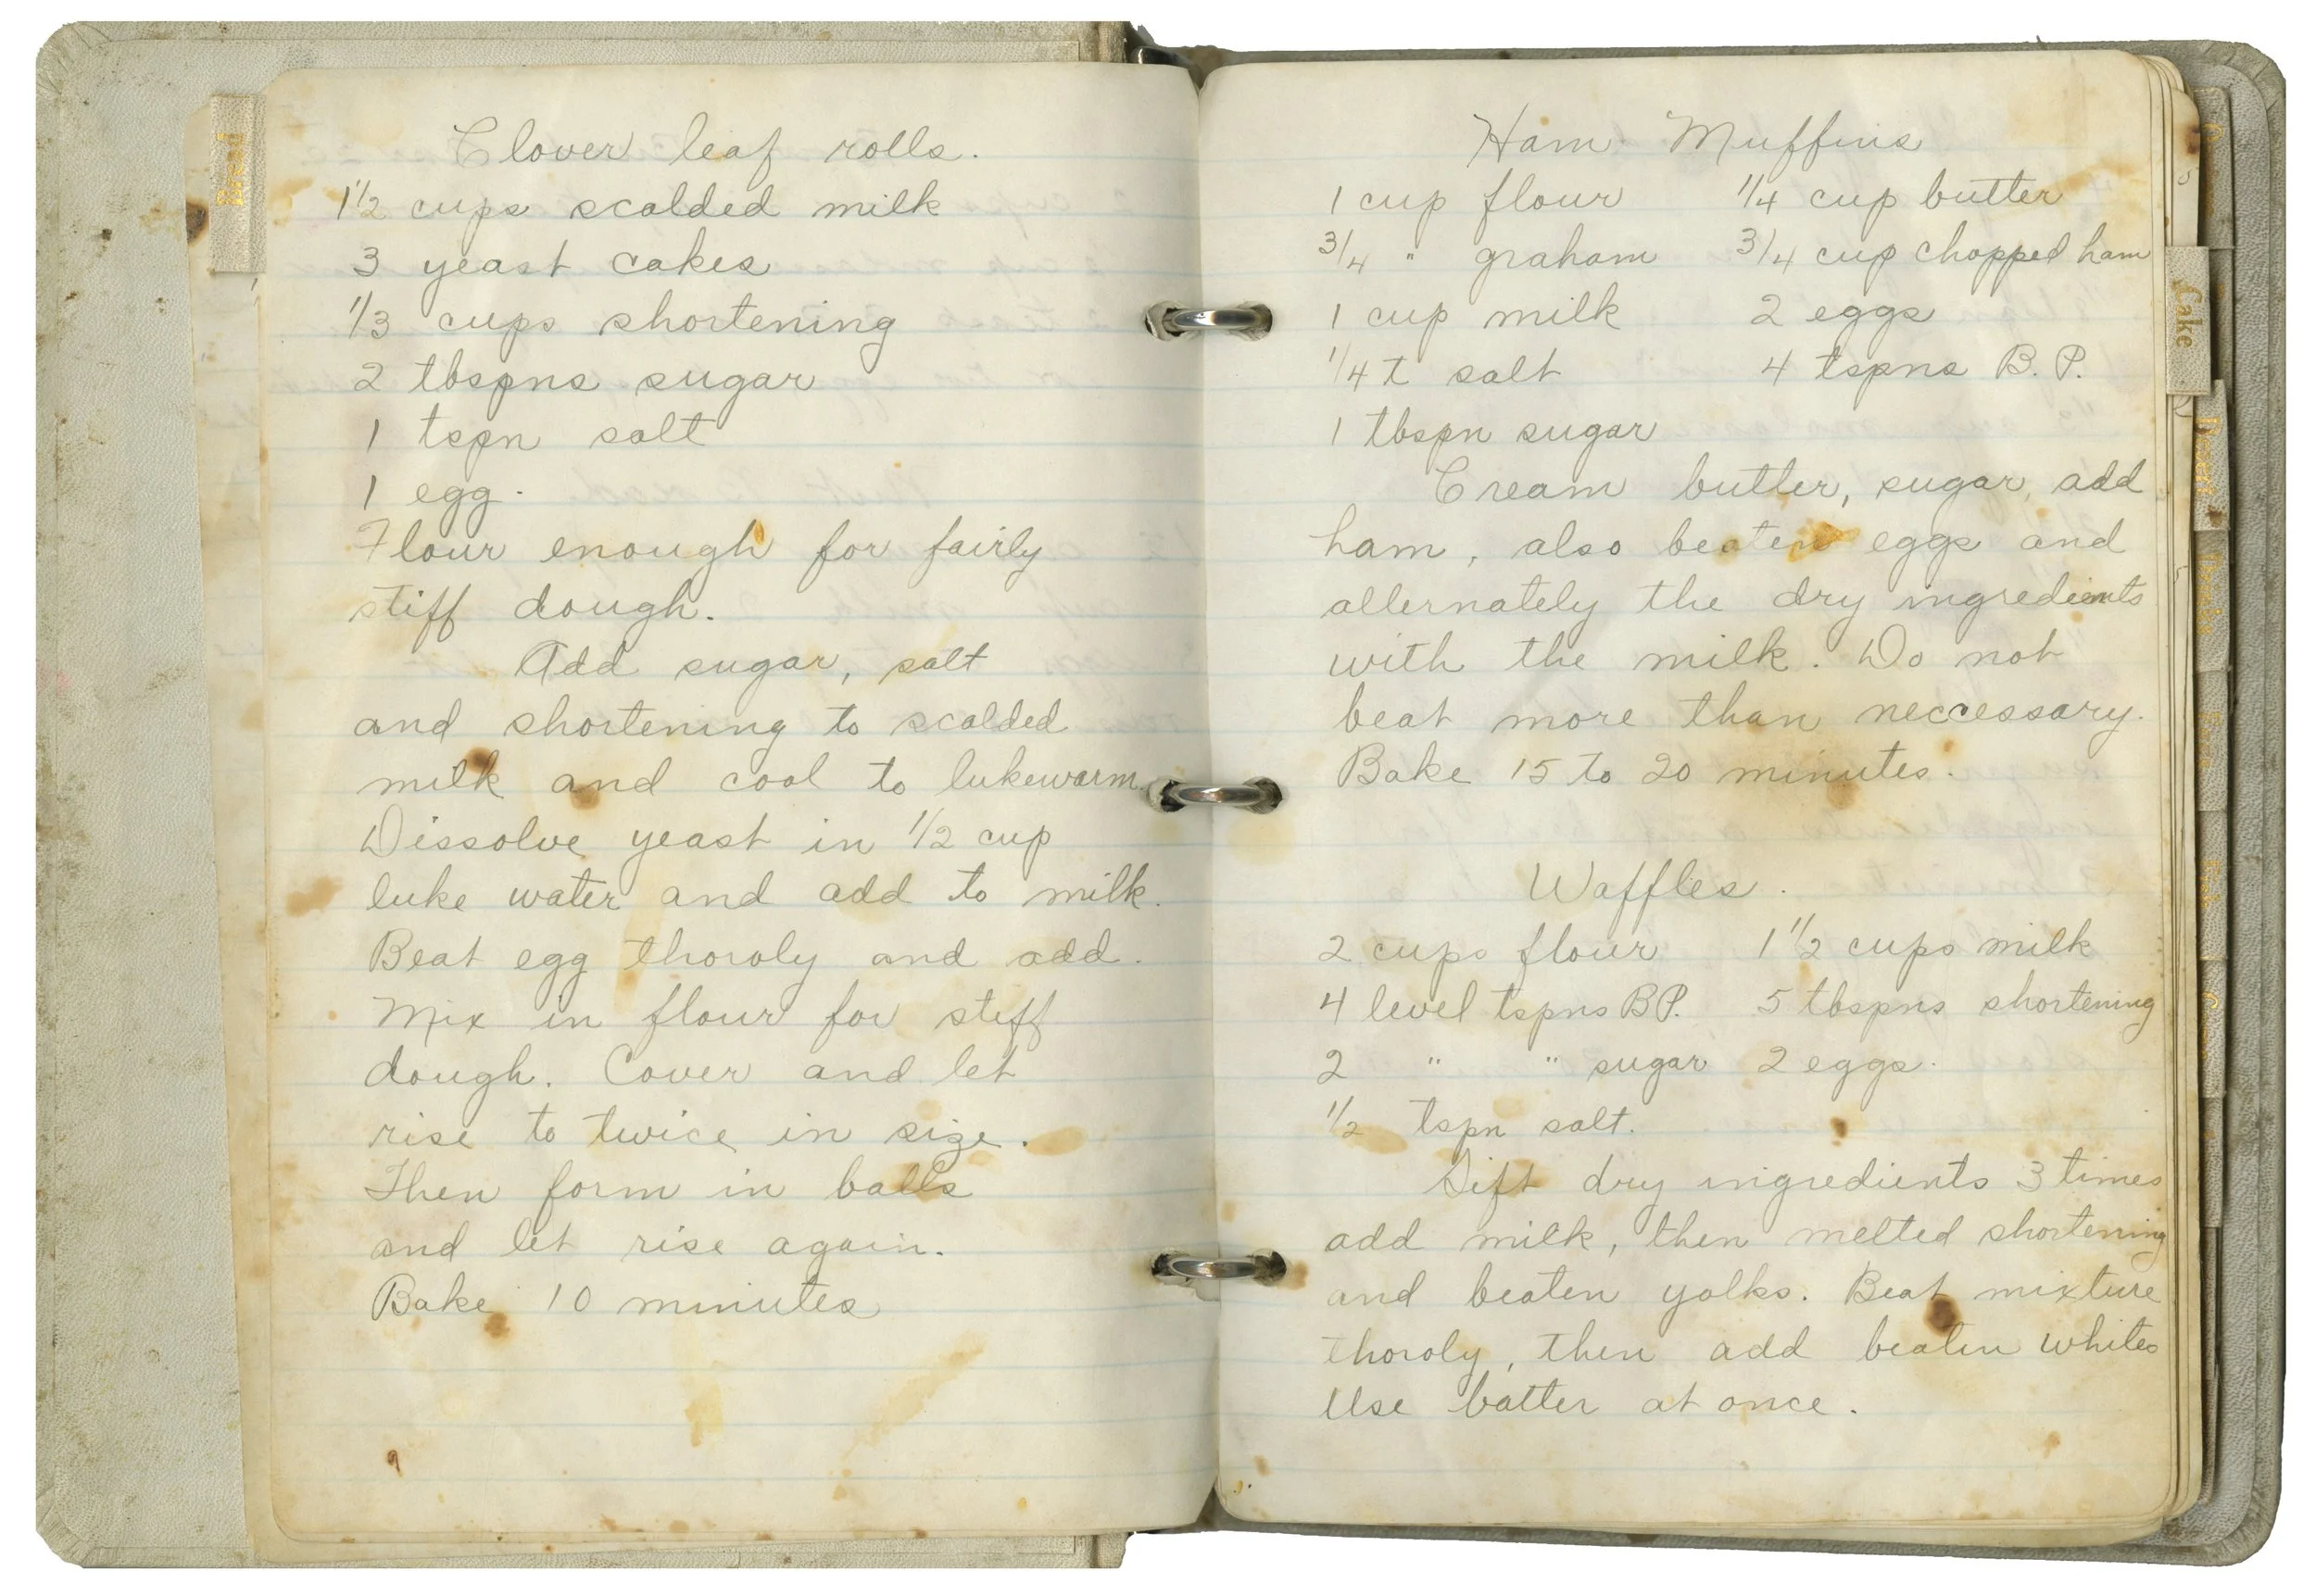 Bread
Clover leaf rolls.
1 1/2 cups scalded milk
3 yeast cakes
1/3 cups shortening
2 tbspns sugar
1 tspn salt
1 egg.
Flour enough for fairly
stiff dough.
Add sugar, salt
and shortening to scalded
milk and cool to lukewarm.
Dissolve yeast in 1/2 cup
luke water and add to milk.
Beat egg thoroly and add.
Mix in flour for stiff
dough. Cover and let
rise to twice in size.
Then form in balls
and let rise again.
Bake 10 minutes
Ham Muffins
1 cup flour 1/4 cup butter
3/4 " graham 3/4 cup chopped ham
1 cup milk 2 eggs
1/4 t salt 4 tspns B.P.
1 tbspn sugar
Cream butter, sugar, add
ham, also beaten eggs and
allernately the dry ingredients
with the milk. Do not
beat more than neccessary.
Bake 15 to 20 minutes.
Waffles.
2 cups flour 1 1/2 cups milk
4 level tspns BP. 5 tbspns shortening
2 " " sugar 2 eggs.
1/2 tspn salt.
Sift dry ingredients 3 times
add milk, then melted shortening
and beaten yolks. Beat mixture
thoroly, then add beaten whites
Use batter at once.
Cake
Desert